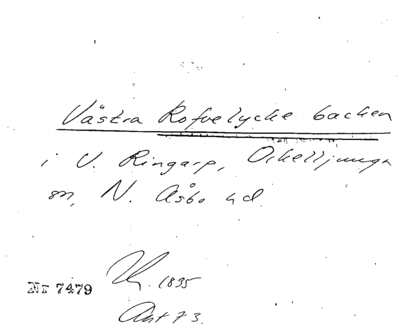 Västra Rofvelycke backen
i V. Ringarp, Örkelljunga
sn, N. Åsbo hd
1895
Nr 7479
Ant 73.